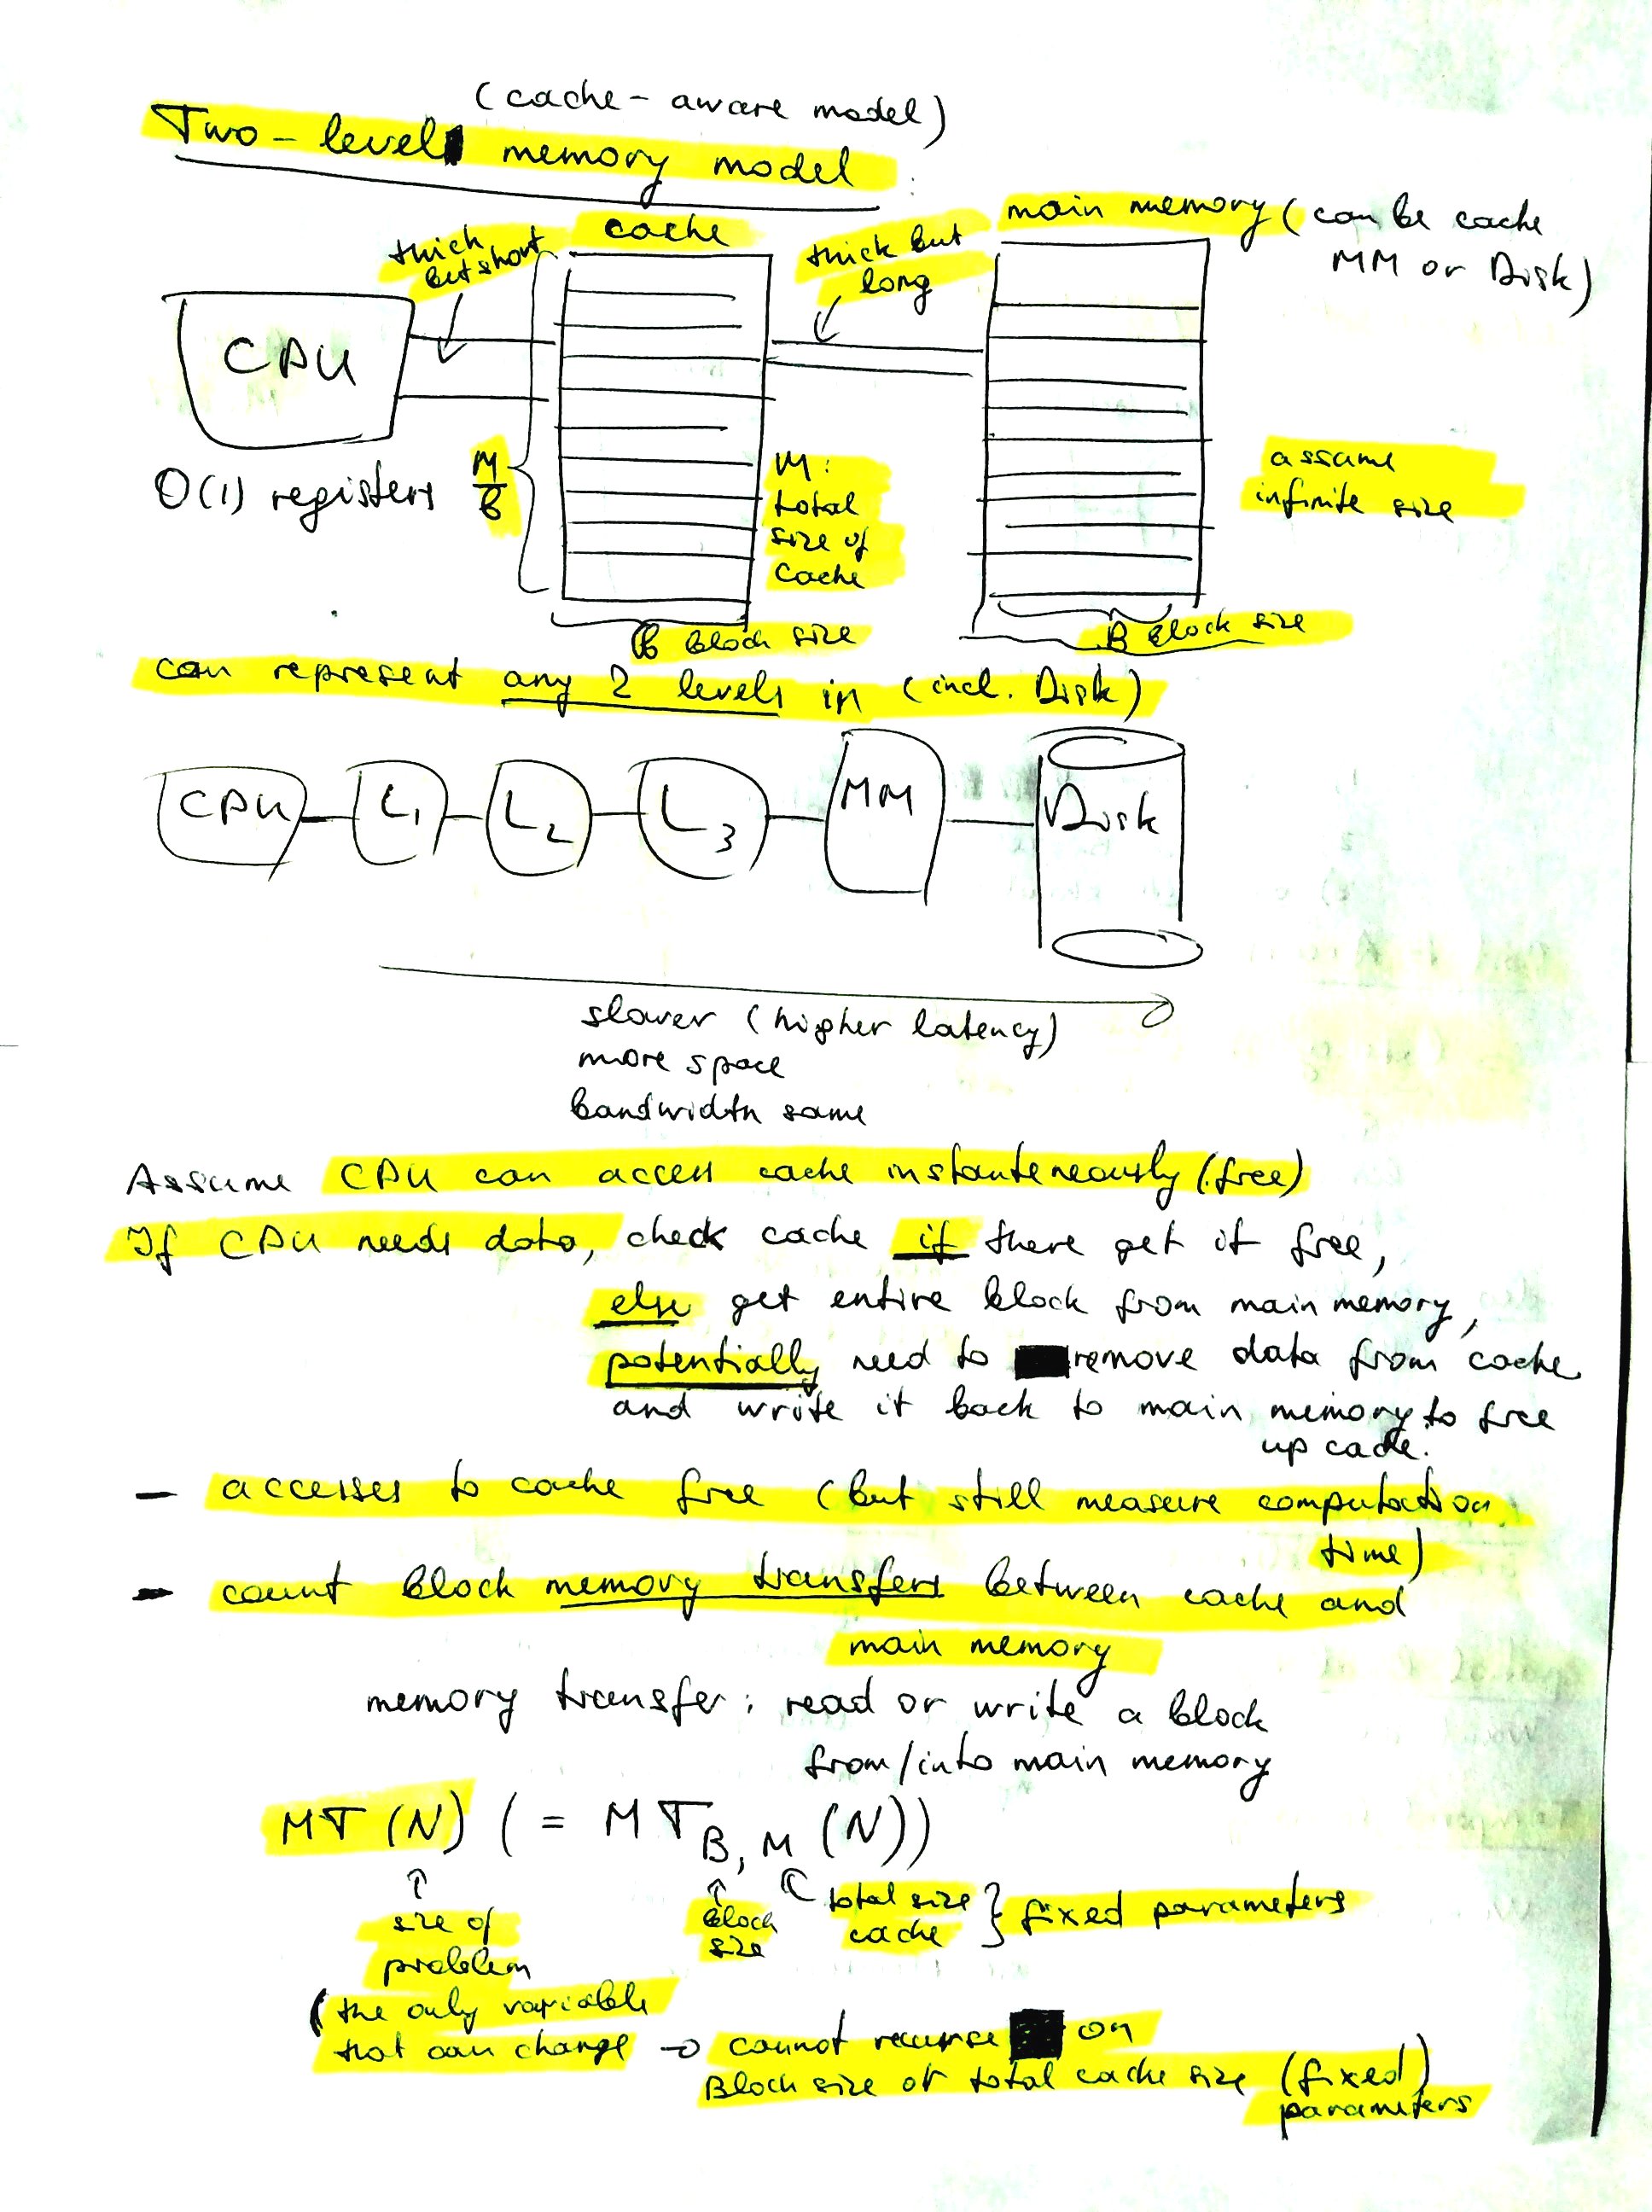 (cache-aware model)
Two-level memory model
thick but short
cache
thick but long
main memory (can be cache
MM or Disk)
CPU
O(1) registers
M/B
M:
total
size of
cache
assume
infinite size
B block size
B block size
can represent any 2 levels in (incl. Disk)
CPU L1 L2 L3 MM Disk
slower (higher latency)
more space
bandwidth same
Assume CPU can access cache instanteneously (free)
If CPU needs data, check cache if there get it free,
else get entire block from main memory,
potentially need to remove data from cache
and write it back to main memory to free
up cache.
- accesses to cache free (but still measure computation
time)
- count block memory transfers between cache and
main memory
memory transfer: read or write a block
from/into main memory
MT(N) (= MT B,M (N))
↑ size of problem
↑ block size
total size cache } fixed parameters
(the only variable
that can change → cannot recurse on
Block size or total cache size (fixed)
parameters